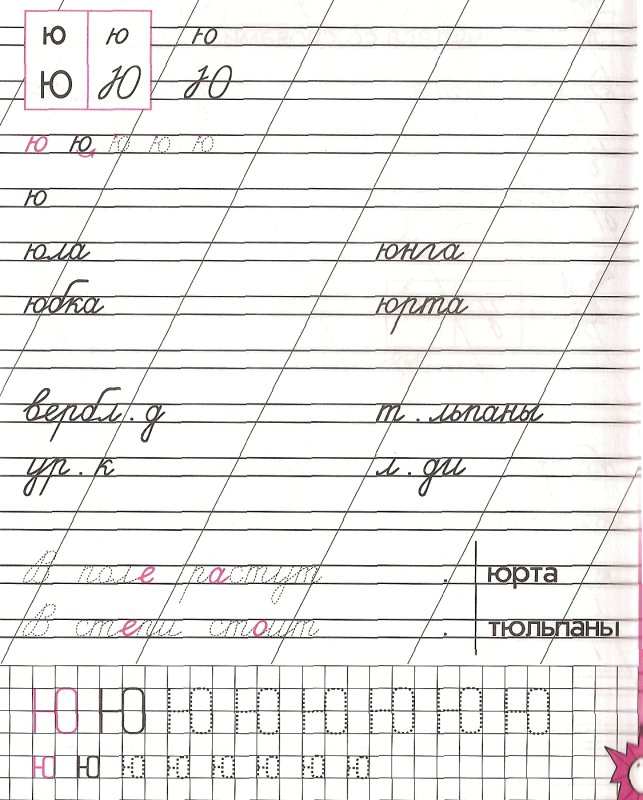 ю ю ю
Ю Ю Ю
ю ю ю ю ю
ю
юла юнга
юбка юрта
вербл . д т . льпаны
ур . к л . ди
В поле растут . юрта
В степи стоит . тюльпаны
Ю Ю Ю Ю Ю Ю Ю Ю
ю ю ю ю ю ю ю ю